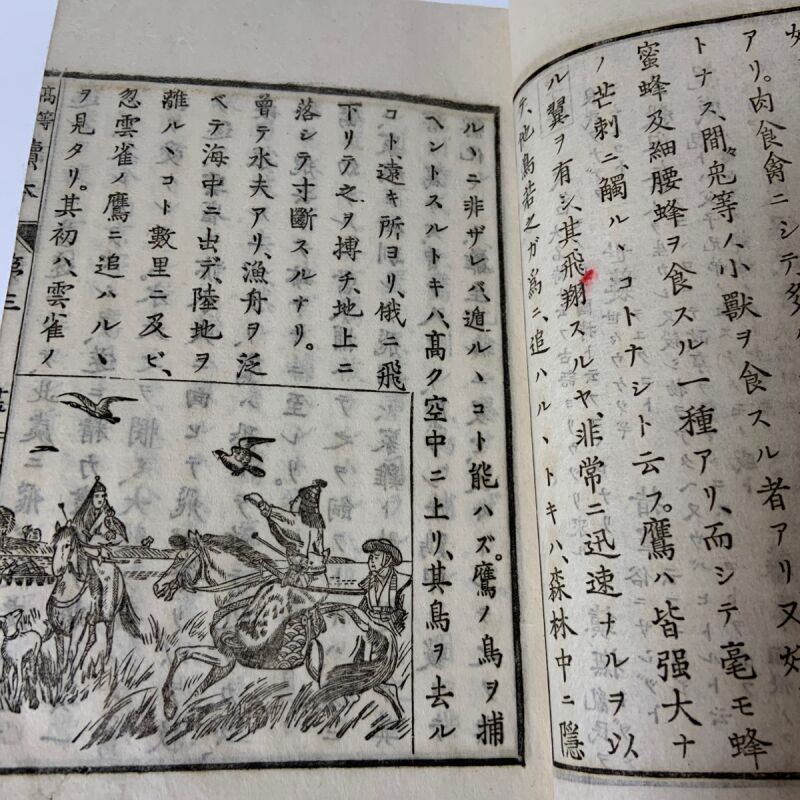 アリ。肉食禽ニシテ多
アリ又好
トナス、間〻兎等ノ、小獸ヲ食スル者
蜜蜂及細腰蜂ヲ食スル一種アリ、而シテ毫モ蜂
ノ芒刺ニ、觸ルヽコトナシト云フ。鷹ハ皆强大ナ
ル翼ヲ有シ、其飛翔スルヤ、非常ニ迅速ナルヲ以
テ、他鳥若之ガ爲ニ、追ハルヽトキハ、森林中ニ隱
ルヽニ非ザレバ、遁ルヽコト能ハズ。鷹ノ鳥ヲ捕
ヘントスルトキハ、高ク空中ニ上リ、其鳥ヲ去ル
コト、遠キ所ヨリ、俄ニ飛
下リテ之ヲ搏チ、地上ニ
落シテ寸斷スルナリ。
曾テ水夫アリ、漁舟ヲ泛
ベテ海中ニ出デ、陸地ヲ
離ルヽコト數里ニ及ビ、
忽雲雀ノ鷹ニ追ハルヽ
ヲ見タリ。其初ハ、雲雀ノ
高等讀本
第三